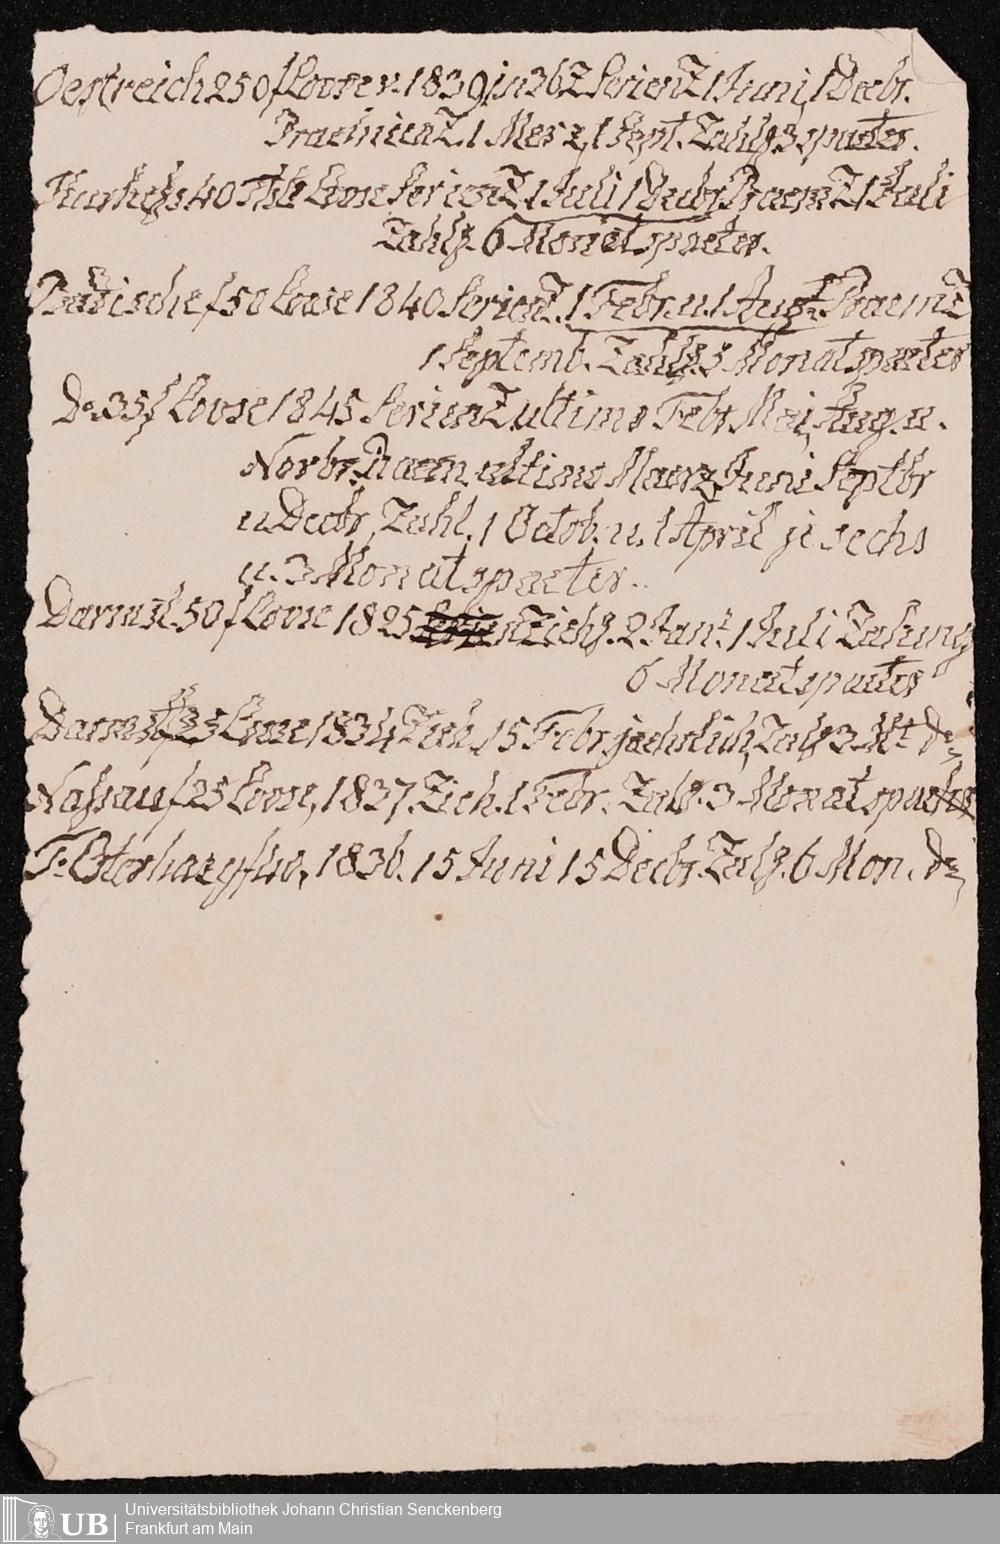 Oestreich 250 f Loose v. 1839 in 36 Z Serien Z 1 Juni, 1 Decbr.
Praemien Z. 1 Merz, 1 Sept. Zahlg 3 spaeter.
Kurhess 40 Thl Loose Serien Z 1 Juli 1 Praem Z 1 Juli
Zahlg. 6 Monat spaeter.
Badische f 50 Loose 1840 Serien Z. 1 Febr. u. 1 Augt Praem Z
1 Septemb. Zahlg. 3 Monat spaeter
Do 35 f Loose 1845 Serien Z ultimo Febr Mai, Aug. u.
Novbr. Praem ultimo Maerz, Juni Septbr
u Decbr, Zahl. 1 Octob. u. 1 April je sechs
u. 3 Monat spaeter.
Darmst. 50 f Loose 1825 Ziehg. 2 Jan. 1 Juli Zahung
6 Monat spaeter
Darmst f 25 Loose 1834 Zieh. 15 Febr jaehrlich, Zahlg 3 Mt do
Nassau f 25 Loose, 1837 Zieh. 1 Febr. Zahlg. 3 Monat spaeter
F. Esterhazy f 40, 1836. 15 Juni 15 Decbr. Zahlg. 6 Mon. do
UB
Universitätsbibliothek Johann Christian Senckenberg
Frankfurt am Main